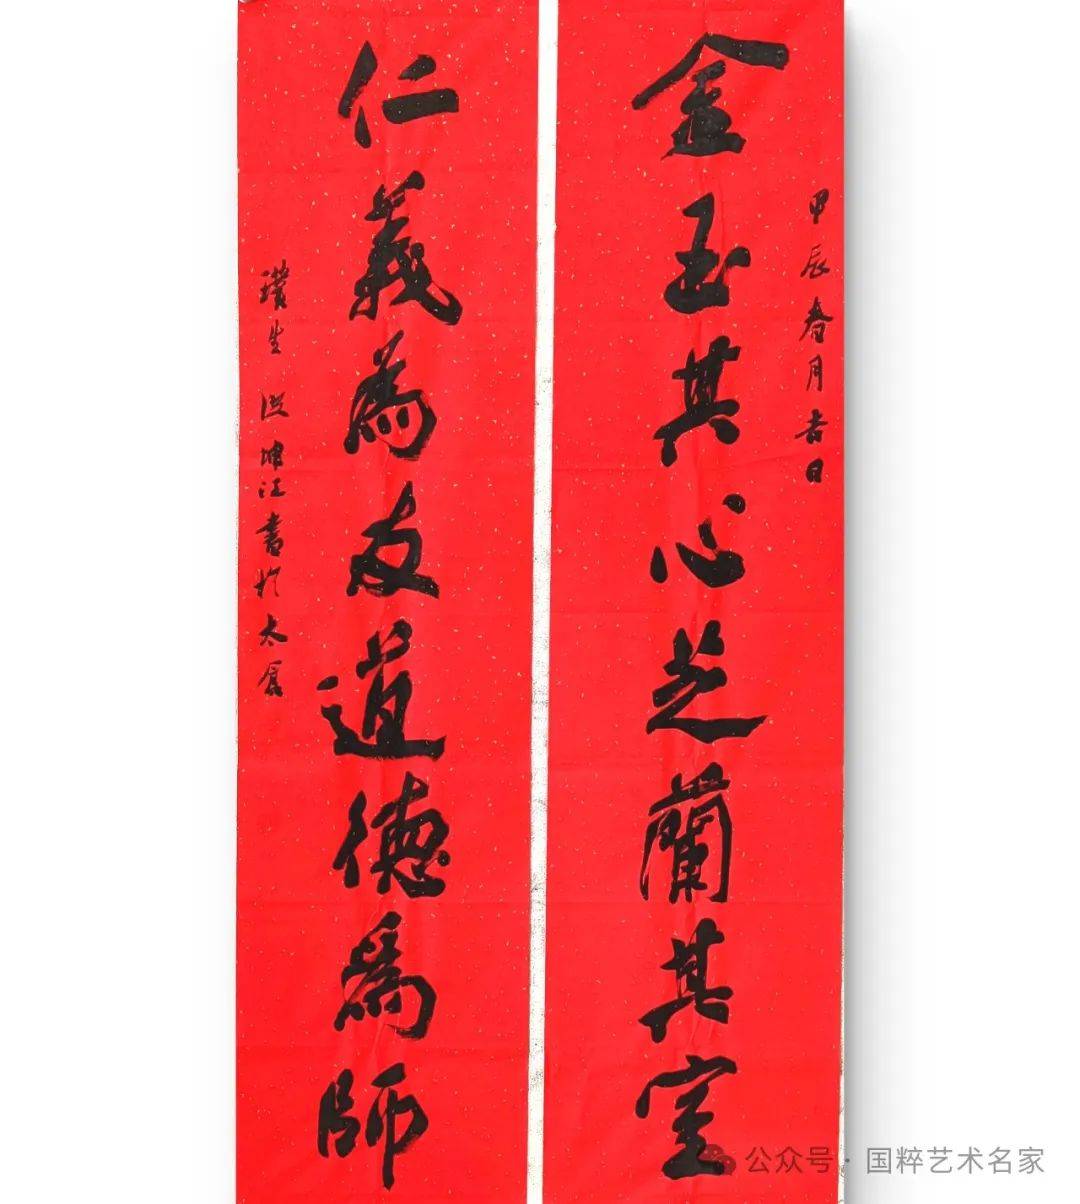 甲辰春月吉日
金玉其心芝蘭其室
仁義為友道德為師
瓚生 洪坤江書於太倉
公众号·国粹艺术名家